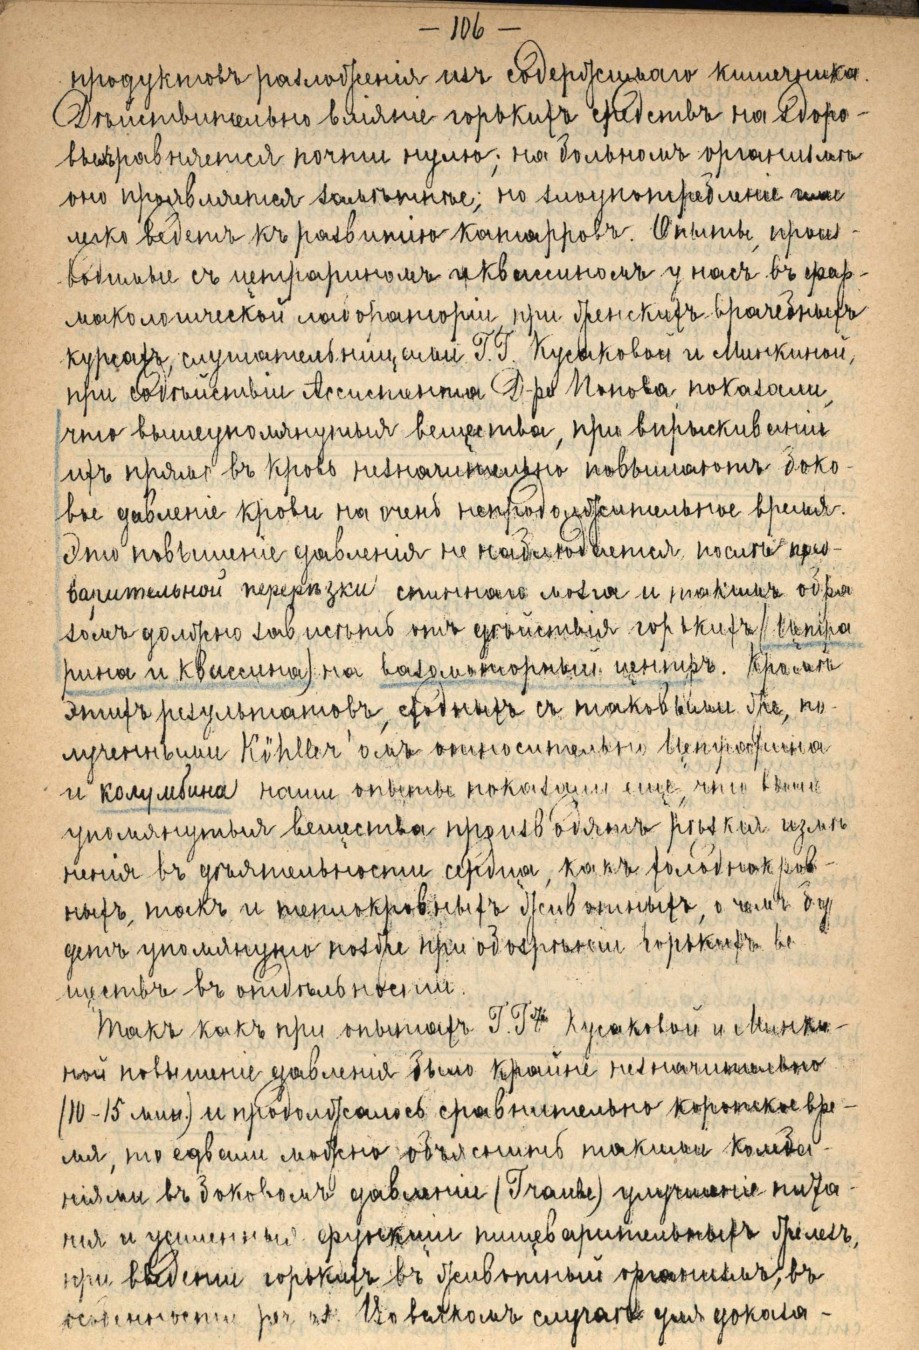 — 106 —
продуктовъ разложенія изъ содержимаго кишечника.
Дѣйствительно вліяніе горькихъ средствъ на здоро-
выхъ равняется почти нулю; на больномъ организмѣ
оно проявляется замѣтнѣе; но злоупотребленіе ими
легко ведетъ къ развитію катарровъ. Опыты, произ-
водимые съ цетрариномъ и квассиномъ у насъ въ фар-
макологической лабораторіи при женскихъ врачебныхъ
курсахъ, слушательницами Г.Г. Кусаковой и Минкиной,
при содѣйствіи Ассистента Д-ра Попова, показали,
что вышеупомянутыя вещества, при впрыскиваніи
ихъ прямо въ кровь незначительно повышаютъ боко-
вое давленіе крови на очень непродолжительное время.
Это повышеніе давленія не наблюдается, послѣ пред-
варительной перерѣзки спиннаго мозга и такимъ обра
зомъ должно зависѣть отъ дѣйствія горькихъ (Цетра
рина и квассина) на вазомоторный центръ. Кромѣ
этихъ результатовъ, сходныхъ съ таковыми же, по-
лученными Köhller'омъ относительно Цетрарина
и колумбина наши опыты показали еще, что выше
упомянутыя вещества производятъ рѣзкія измѣ
ненія въ дѣятельности сердца, какъ холоднокров-
ныхъ, такъ и теплокровныхъ животныхъ, о чемъ бу
детъ упомянуто позже при обозрѣніи горькихъ ве
ществъ въ отдѣльности.
Такъ какъ при опытахъ Г.Г. Кусаковой и Минки-
ной повышеніе давленія было крайне незначительно
(10-15 мин.) и продолжалось сравнительно короткое вре-
мя, то едвали можно объяснить такими колеба-
ніями въ боковомъ давленіи (Traube) улучшеніе пита-
нія и усиленныя функціи пищеварительныхъ железъ,
при введеніи горькихъ въ животный организмъ; въ
особенности Во всякомъ случаѣ для доказа-